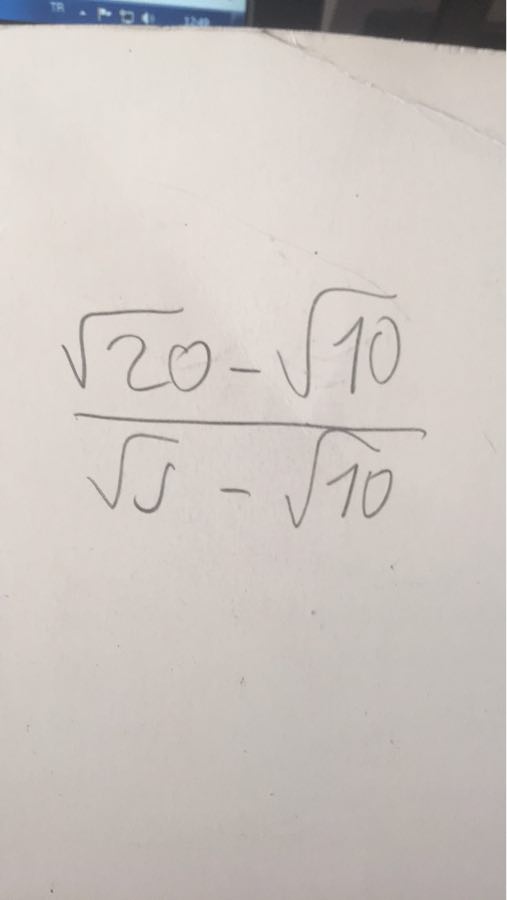 TR 12:49
√20 - √10
√5 - √10